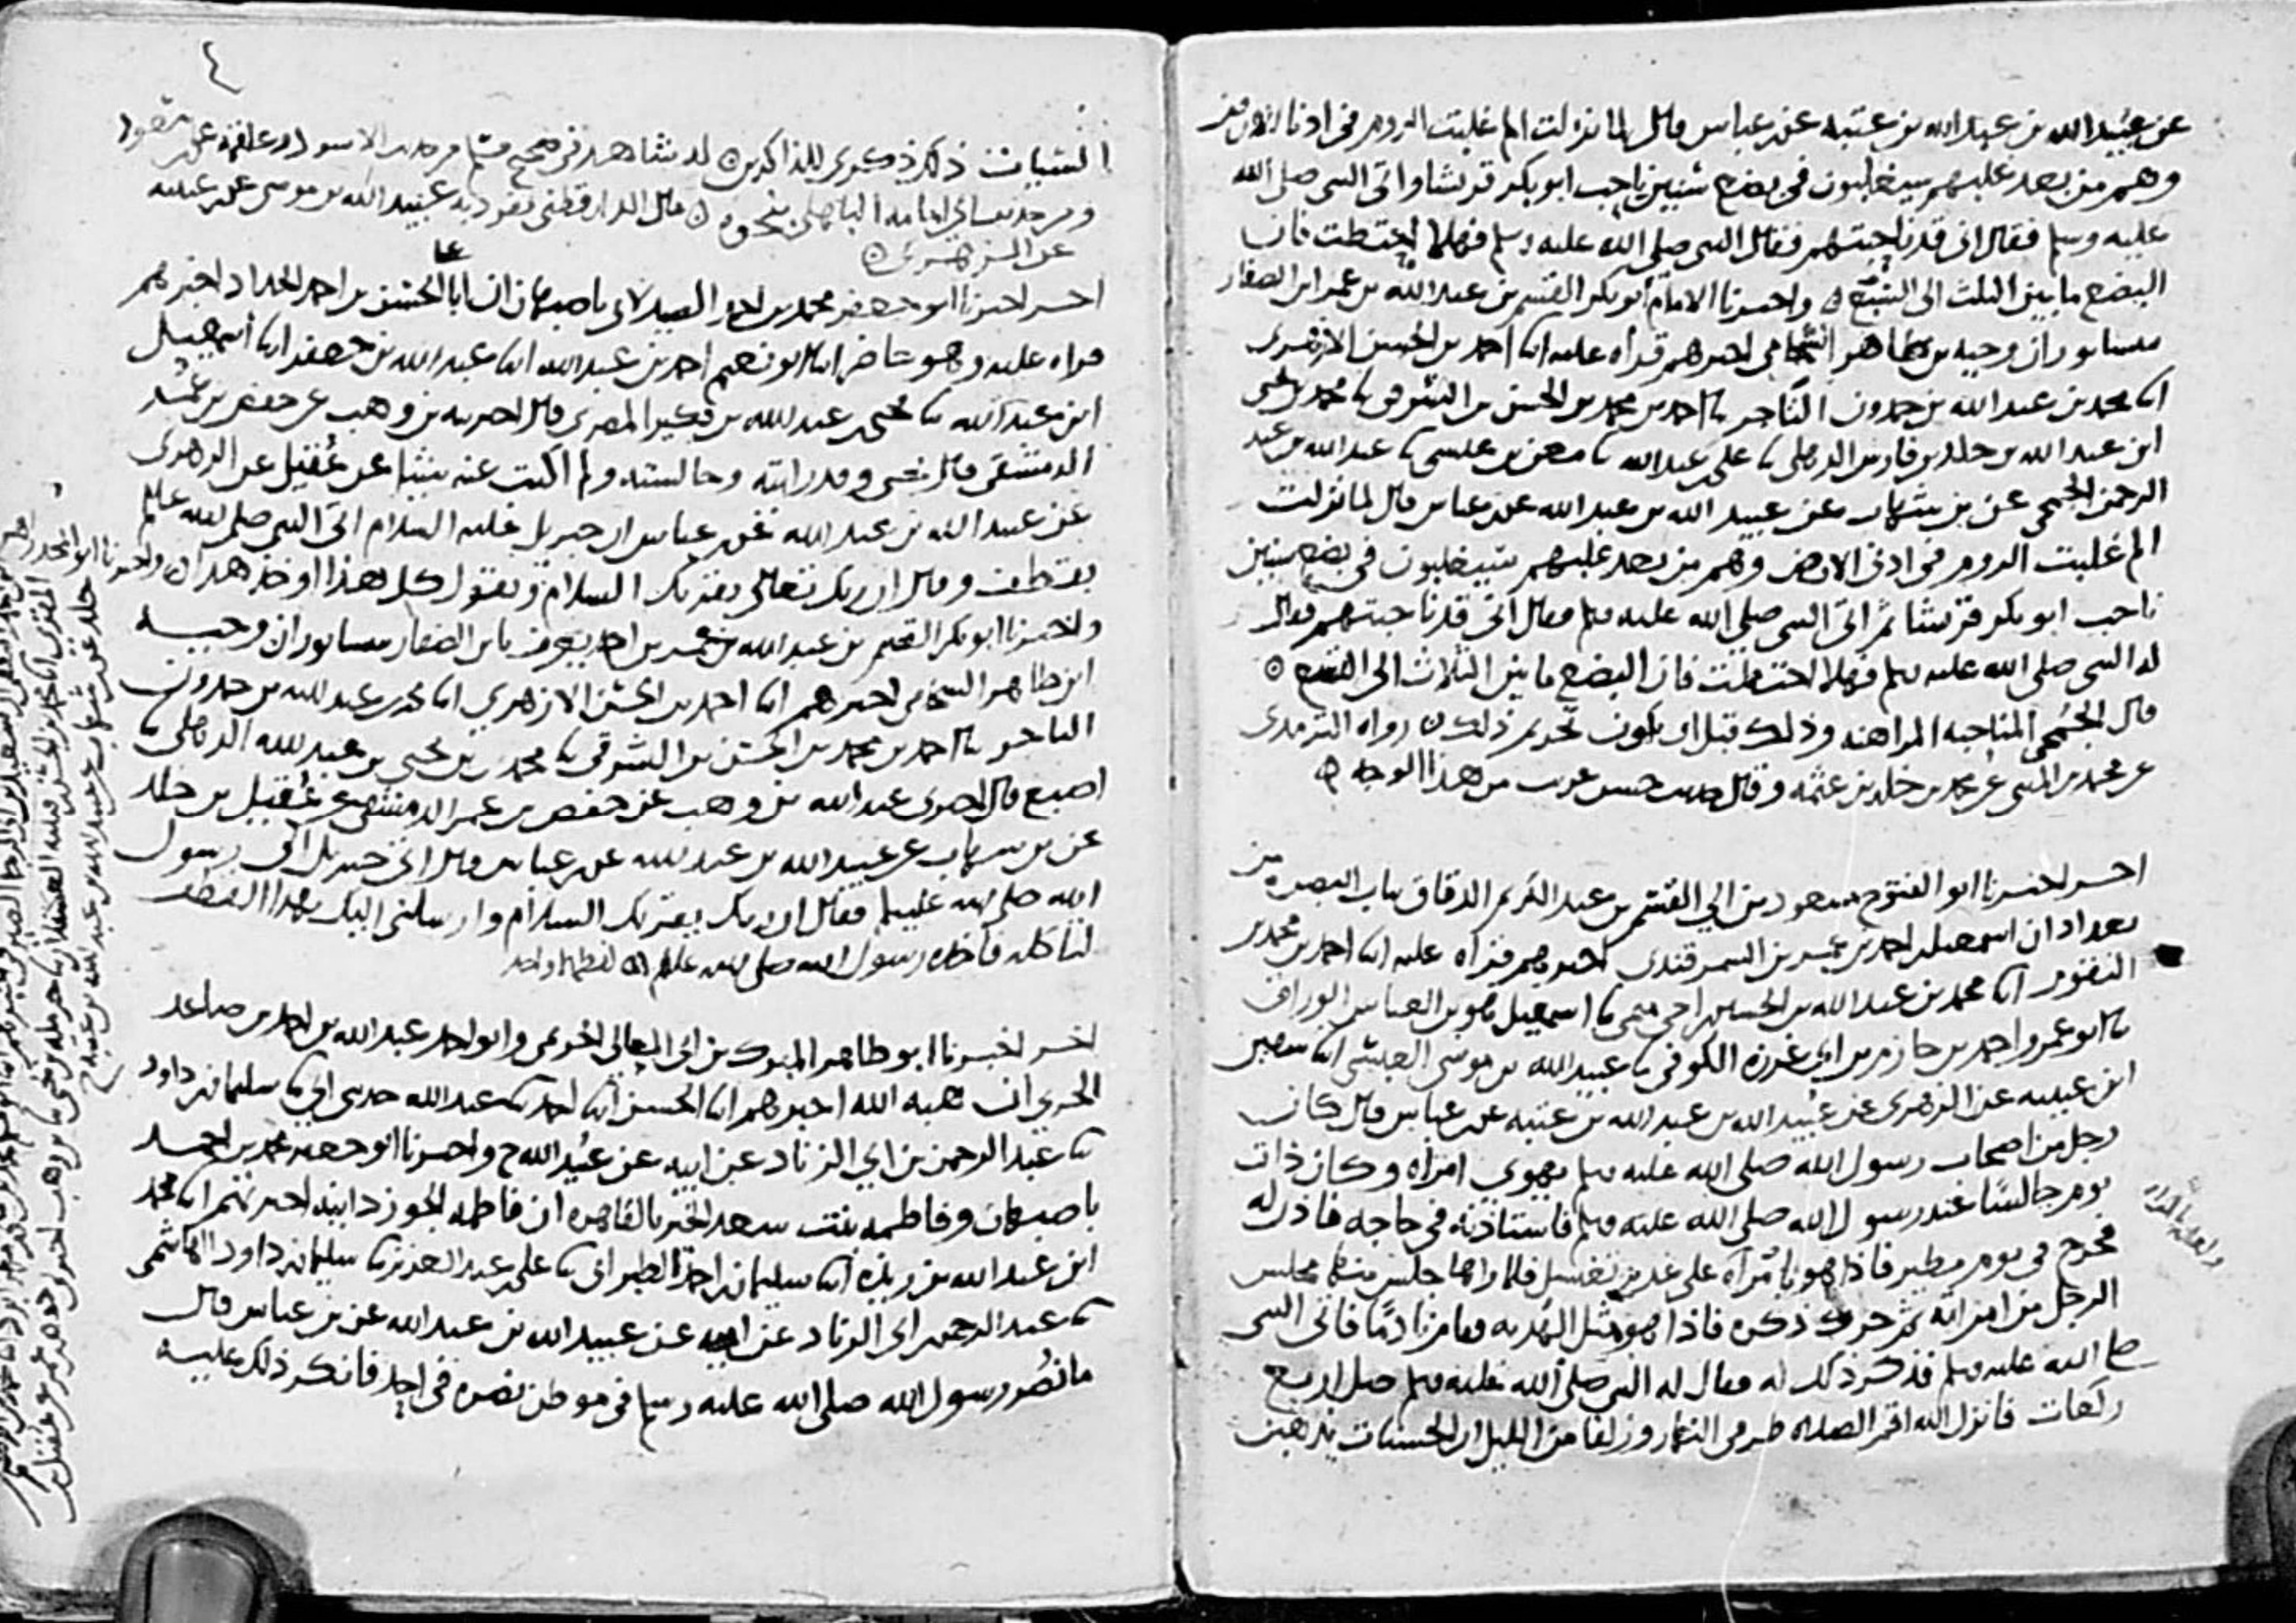 عن عبيد الله بن عبد الله بن عتبة عن بن عباس قال لما نزلت الم غلبت الروم في ادنا الارض
وهم من بعد غلبهم سيغلبون في بضع سنين ناحب ابو بكر قريشا واتى النبي صلى الله
عليه وسلم فقال اني قد ناحبتهم فقال النبي صلى الله عليه وسلم فهلا احتطت فان
البضع ما بين الثلث الى التسع واخبرنا الامام ابو بكر القسم بن عبد الله بن عمر ابن الصفار
بنيسابور ان وجيه بن طاهر الشحامي اخبرهم قراه عليه انا احمد بن الحسن الازهري
انا محمد بن عبد الله بن حمدون التاجر نا احمد بن محمد بن الحسن بن الشرقي نا محمد بن يحيى
ابن عبد الله بن خلد بن فارس الذهلي نا علي بن عبد الله نا معن بن عيسى نا عبد الله بن عبد
الرحمن الجمحي عن بن شهاب عن عبيد الله بن عبد الله عن بن عباس قال لما نزلت
الم غلبت الروم في ادنى الارض وهم من بعد غلبهم سيغلبون في بضع سنين
ناحب ابو بكر قريشا ثم اتى النبي صلى الله عليه وسلم فقال اني قد ناحبتهم فقال
له النبي صلى الله عليه وسلم فهلا احتطت فان البضع ما بين الثلاث الى التسع
قال الجمحي المناحبه المراهنه وذلك قبل ان يكون تحريم ذلك رواه الترمذي
عن محمد بن المثنى عن محمد بن خلد بن عثمه وقال حديث حسن غريب من هذا الوجه
اخر اخبرنا ابو الفتوح مسعود بن ابي القسم بن عبد الكريم الدقاق بباب البصره من
بغداد ان اسمعيل بن احمد بن عمر بن السمرقندي اخبرهم قراه عليه انا احمد بن محمد بن
النقور انا محمد بن عبد الله بن الحسين اخي ميمي نا اسمعيل بن العباس الوراق
نا ابو عمرو احمد بن حازم بن ابي غرزه الكوفي نا عبيد الله بن موسى العبسي انا سفين
ابن عيينه عن الزهري عن عبيد الله بن عبد الله بن عتبه عن بن عباس قال كان
رجل من اصحاب رسول الله صلى الله عليه وسلم يهوى امراه وكان ذات
يوم جالسا عند رسول الله صلى الله عليه وسلم فاستاذنه في حاجه فاذن له
فخرج في يوم مطير فاذا هو بامراه على غدير تغتسل فلما راها جلس منها مجلس
الرجل من امراته ثم حرك ذكره فاذا هو مثل الهدبه فقام نادما فاتى النبي
صلى الله عليه وسلم فذكر ذلك له فقال له النبي صلى الله عليه وسلم صل اربع
ركعات فانزل الله اقم الصلاه طرفي النهار وزلفا من الليل ان الحسنات يذهبن
٤
السيات ذلك ذكرى للذاكرين له شاهد في صحيح مسلم من حديث الاسود وعلقمة عن بن مسعود
ومن حديث ابي امامه الباهلي بنحوه قال الدارقطني تفرد به عبيد الله بن موسى عن بن عيينه
عن الزهري
اخر اخبرنا ابو جعفر محمد بن احمد الصيدلاني باصبهان ان ابا علي الحسن بن احمد الحداد اخبرهم
قراه عليه وهو حاضر انا ابو نعيم احمد بن عبد الله انا عبد الله بن جعفر انا اسمعيل
ابن عبد الله نا يحيى بن عبد الله بن بكير المصري قال اخبرنيه بن وهب عن حفص بن عمر
الدمشقي قال يحيى وقد رايته وجالسته ولم اكتب عنه شيئا عن عقيل عن الزهري
عن عبيد الله بن عبد الله عن بن عباس ان جبريل عليه السلام اتى النبي صلى الله عليه وسلم
بقطف وقال ان ربك تعالى يقريك السلام ويقول كل هذا
واخبرنا ابو بكر القسم بن عبد الله بن عمر بن احمد يعرف بابن الصفار بنيسابور ان وجيه
ابن طاهر الشحامي اخبرهم انا احمد بن الحسن الازهري انا محمد بن عبد الله بن حمدون
التاجر نا احمد بن محمد بن الحسن بن الشرقي نا محمد بن يحيى بن عبد الله الذهلي نا
اصبغ قال اخبرني عبد الله بن وهب عن حفص بن عمر الدمشقي عن عقيل بن خلد
عن بن شهاب عن عبيد الله بن عبد الله عن بن عباس قال اتى جبريل الى رسول
الله صلى الله عليه وسلم فقال ان ربك يقريك السلام وارسلني اليك بهذا القطف
لتاكله فاخذه رسول الله صلى الله عليه وسلم لفظهما واحد
اخر اخبرنا ابو طاهر المبرك بن ابي المعالي الحريمي وابو احمد عبد الله بن احمد بن صاعد
الحربي ان هبه الله اخبرهم انا الحسن انا احمد نا عبد الله حدثني ابي نا سليمان بن داود
نا عبد الرحمن بن ابي الزناد عن ابيه عن عبيد الله ح واخبرنا ابو جعفر محمد بن احمد
باصبهان وفاطمه بنت سعد الخير بالقاهره ان فاطمه الجوزدانيه اخبرتهم انا محمد
ابن عبد الله بن ريذه انا سليمان بن احمد الطبراني نا علي بن عبد العزيز نا سليمان بن داود الهاشمي
نا عبد الرحمن بن ابي الزناد عن ابيه عن عبيد الله بن عبد الله عن بن عباس قال
ما نصر رسول الله صلى الله عليه وسلم في موطن نصره في احد فانكر ذلك عليه